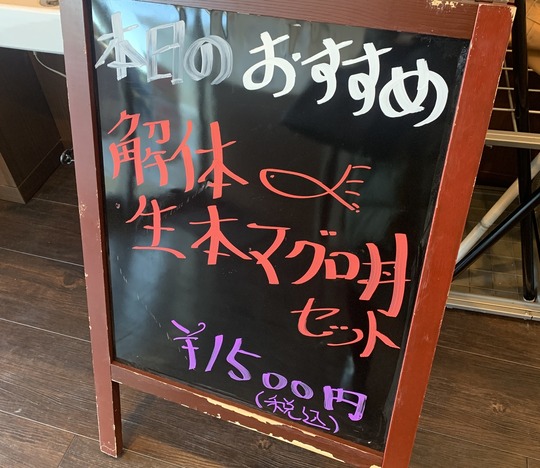 本日のおすすめ
解体
生本マグロ丼
セット
¥1500円
(税込)